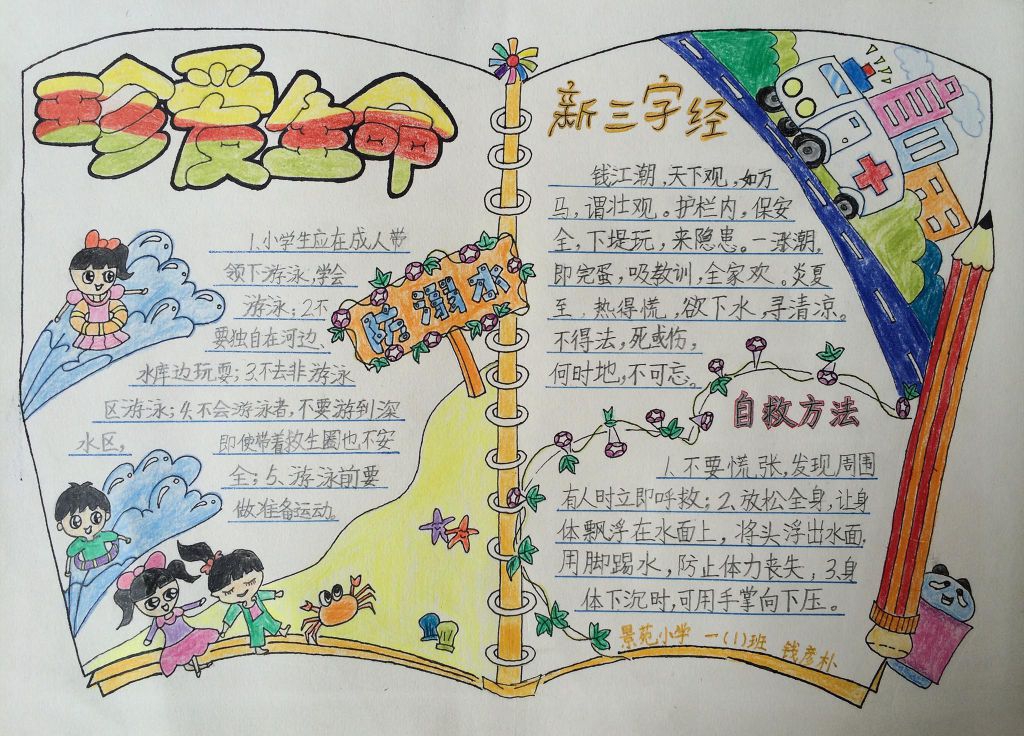 珍爱生命
1.小学生应在成人带
领下游泳,学会
游泳;2.不
要独自在河边、
水库边玩耍;3.不去非游泳
区游泳;4.不会游泳者,不要游到深
水区, 即使带着救生圈也不安
全;5、游泳前要
做准备运动。
防溺水
新三字经
钱江潮,天下观,如万
马,谓壮观。护栏内,保安
全,下堤玩,来隐患。一涨潮,
即完蛋,吸教训,全家欢。炎夏
至,热得慌,欲下水,寻清凉。
不得法,死或伤,
何时地,不可忘。
自救方法
1.不要慌张,发现周围
有人时立即呼救;2、放松全身,让身
体飘浮在水面上,将头浮出水面,
用脚踢水,防止体力丧失,3.身
体下沉时,可用手掌向下压。
景苑小学 一(1)班 钱彦朴